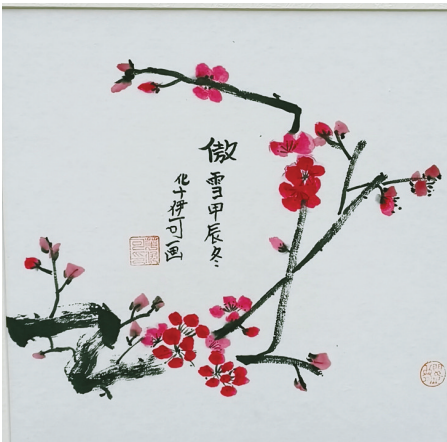 傲
雪甲辰冬
化十伊可画